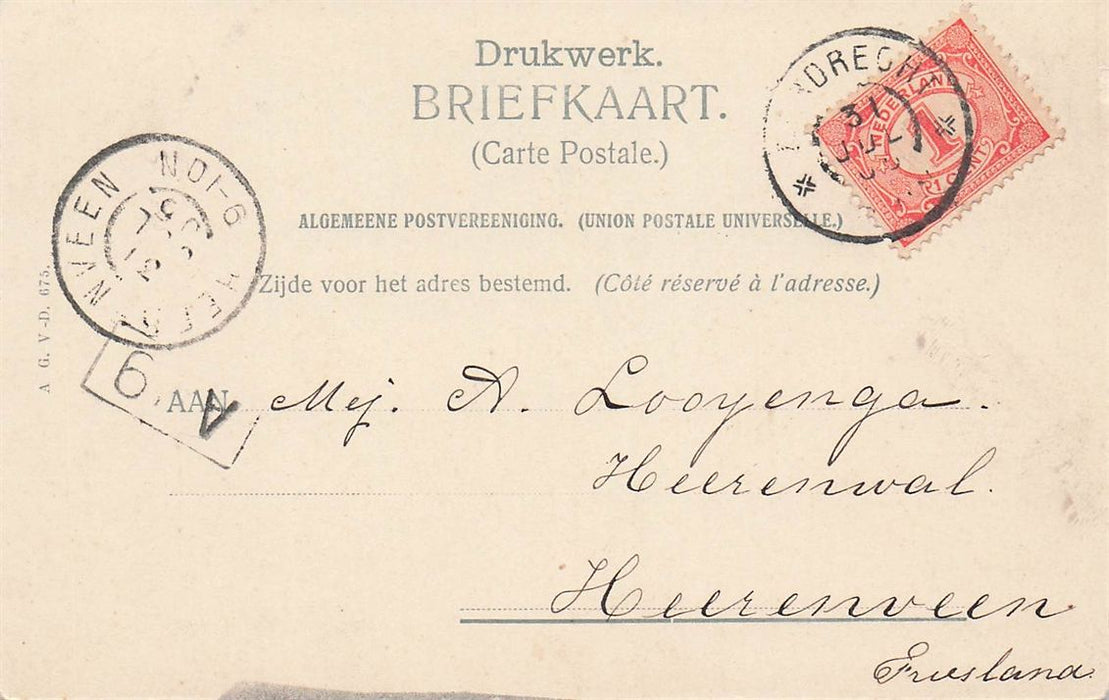 Drukwerk.
BRIEFKAART.
(Carte Postale.)
ALGEMEENE POSTVEREENIGING. (UNION POSTALE UNIVERSELLE.)
Zijde voor het adres bestemd. (Côté réservé à l'adresse.)
NEDERLAND
1
CENT
31
JUL
A G. V.-D. 675.
9
A
AAN Mej. A. Looyenga.
Heerenwal.
Heerenveen
Friesland